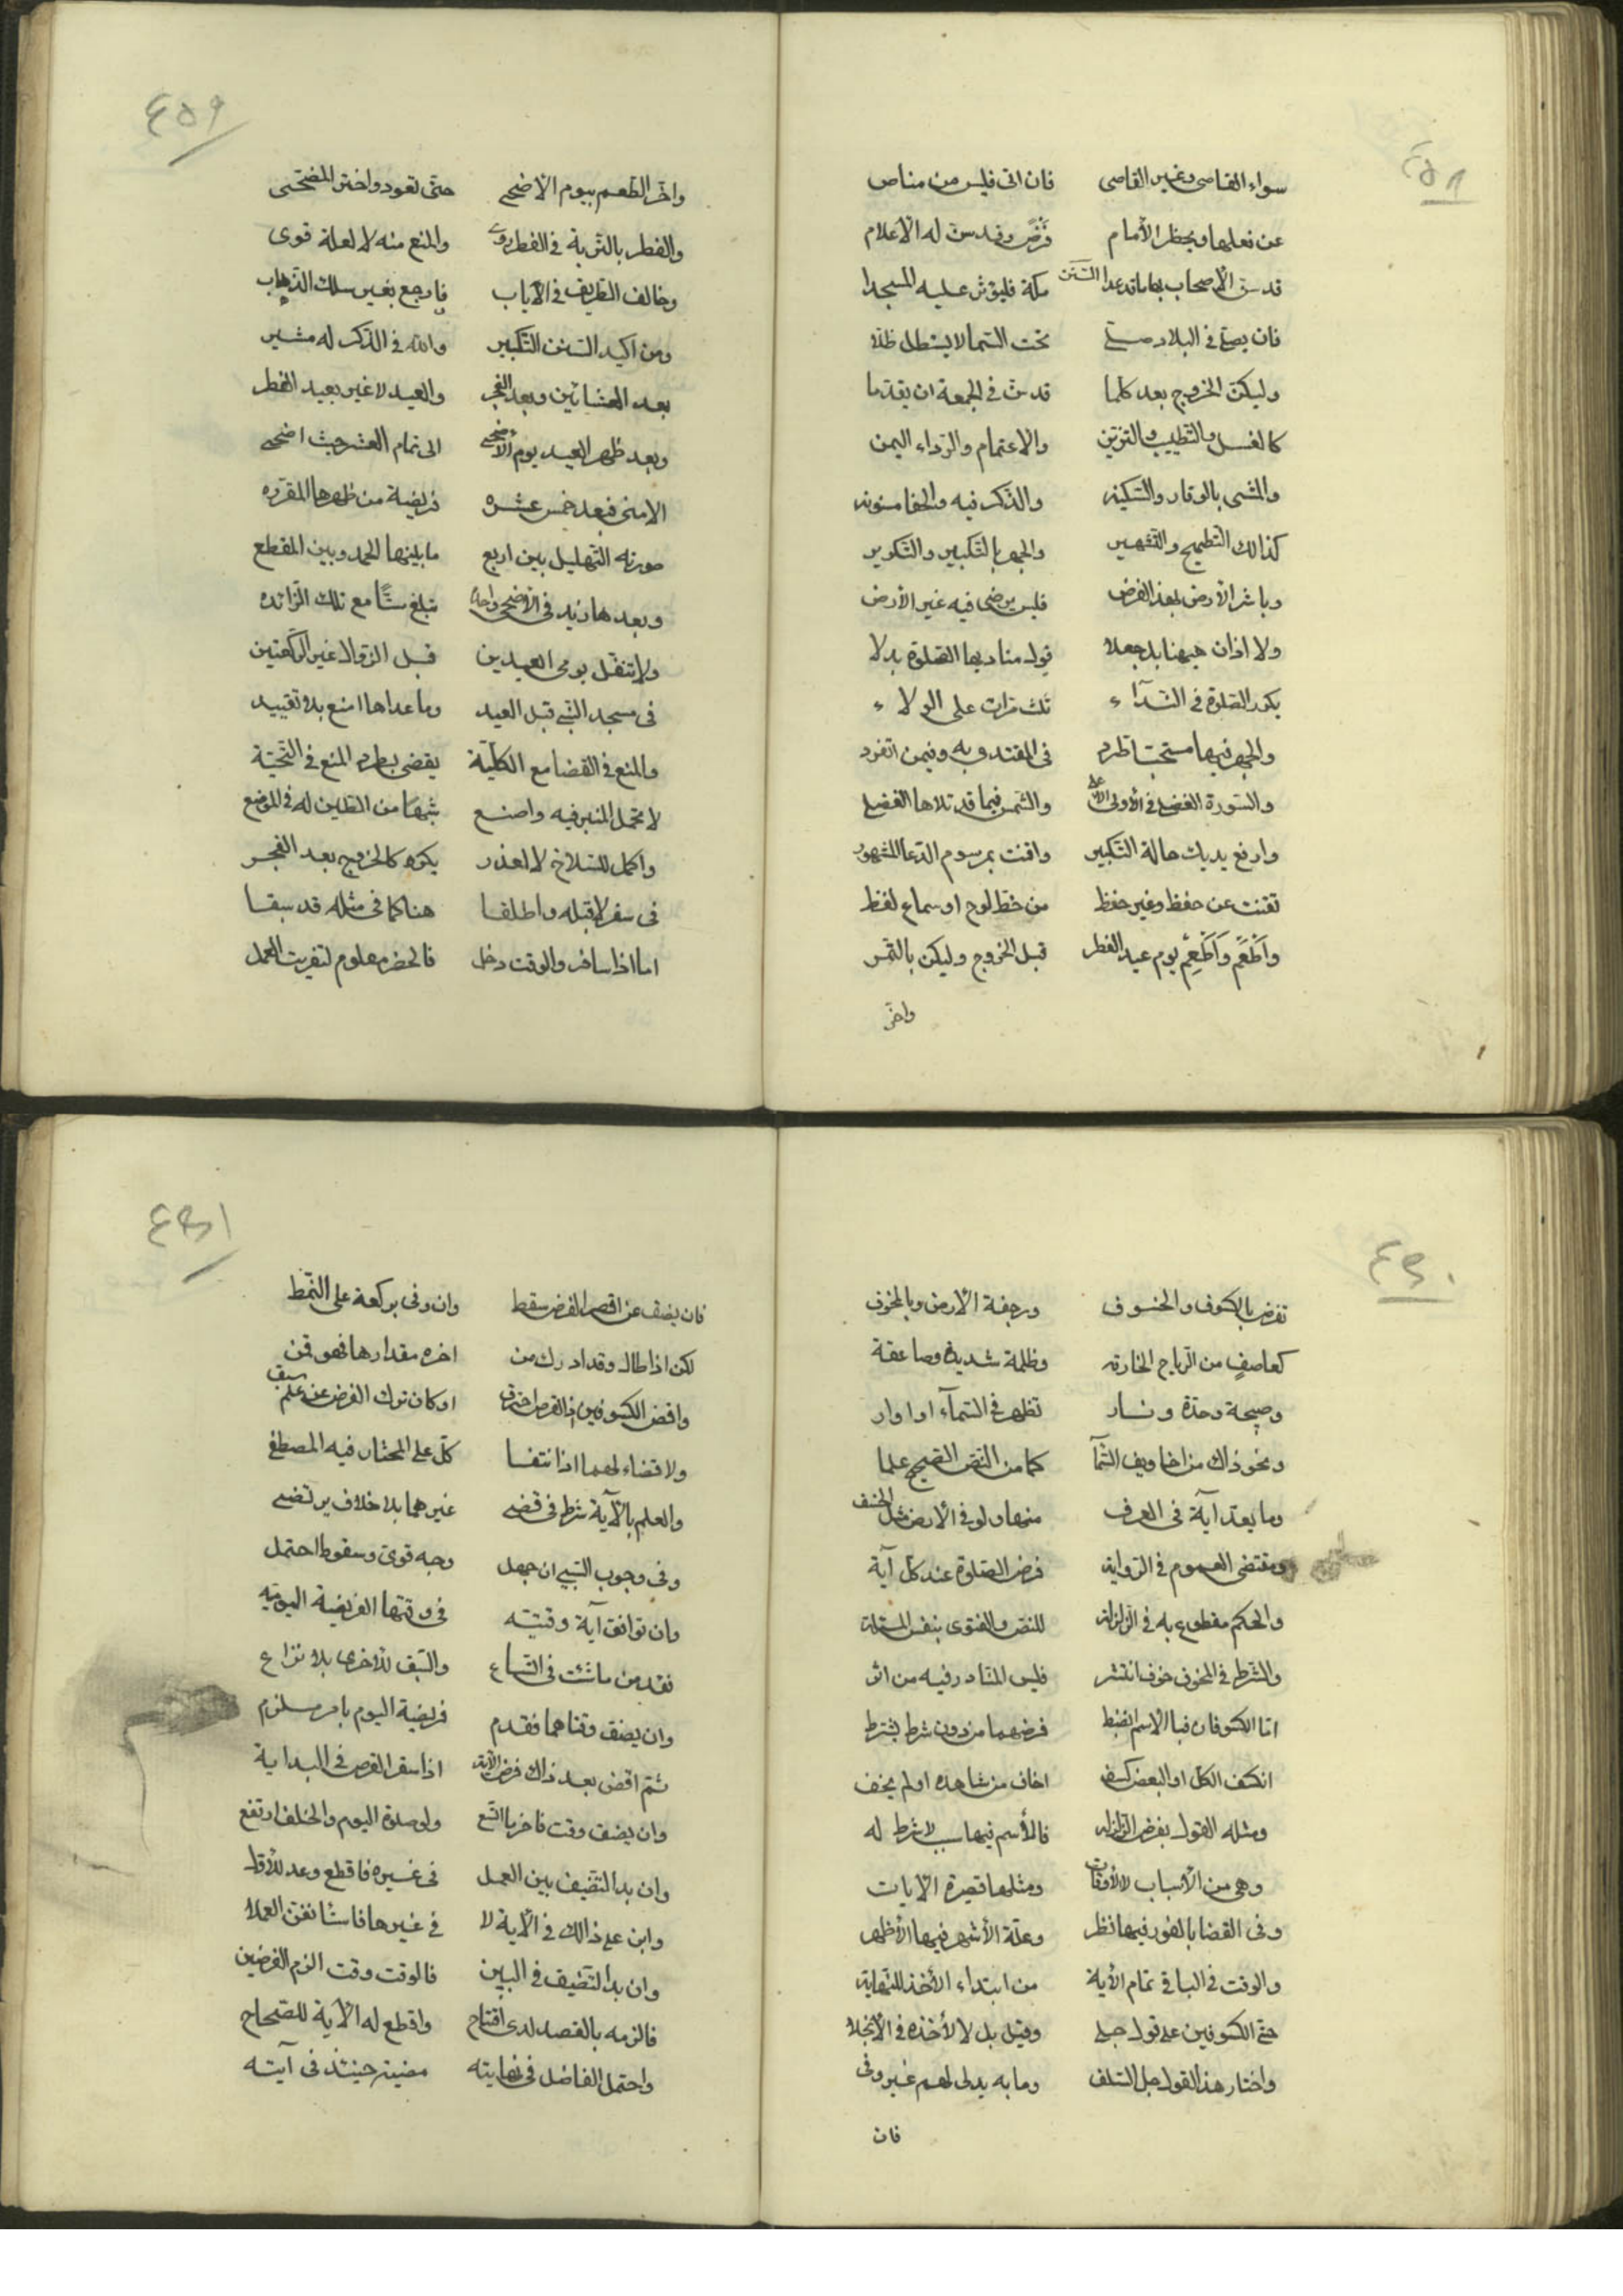 ٤٥٨
سواء القاصى وغير القاصى فان اتى فليس من مناص
عن فعلها ويحظر الأمام فرض وقد سن له الأعلام
قد سن الاصحاب بها ماقد عدا السنن مكة فليؤثر عليه المسجدا
فان يصلى فى البلاد صلى تحت السما لا يستظل ظلا
وليكن الخروج بعد كلما قد سن فى الجمعة ان يقدما
كالغسل والتطيب والتزين والاعتمام والرداء اليمن
والمشى بالوقار والسكينه والذكر فيه والحفا مسنونه
كذالك التطميح والتشهير والجهر بالتكبير والتكوير
وباشر الأرض لهذا الفرض فليس يرضى فيه غير الأرض
ولا اذان هيهنا بل جعلا قول مناديها الصلوة بدلا
يكرر الصلوة فى النداء ثلث مرات على الولاء
والجهر فيها مستحب اطرد فى المقتدى به وفيمن انفرد
والسورة الفضلى فى الأولى الاعلى والشمس فيما قد تلاها الفضلى
وارفع يديك حالة التكبير واقنت بمرسوم الدعا المشهور
تقنت عن حفظ وغير حفظ من خط لوح او سماع لفظ
واطعم واطعم يوم عيد الفطر قبل الخروج وليكن بالتمر
واخر
٤٥٩
واخر الطعم بيوم الأضحى حتى تعود واختر المضحى
والفطر بالتربة فى الفطر روى والمنع منه لا لعلة قوى
وخالف الطريق فى الأياب فارجع بغير سلك الذهاب
ومن اكيد السنن التكبير والله فى الذكر له مشير
بعد العشائين وبعد الفجر والعيد لا غير بعيد الفطر
وبعد ظهر العيد يوم الأضحى الى تمام العشر حيث اضحى
الا منى فبعد خمس عشره فريضة من ظهرها المقرره
صورته التهليل بين اربع ما بينها الحمد وبين المقطع
وبعدها زيد فى الأضحى واحده تبلغ ستا مع تلك الزائده
ولا تنفل يومى العيدين قبل الزوال غير الركعتين
فى مسجد النبى قبل العيد وما عداها امنع بلا تقييد
والمنع فى القضا مع الكلية يقضى بطرد المنع فى التحية
لا تحمل المنبر فيه واصنع شبهها من الطين له فى الموضع
واكل للسلاح لا لعذر يكره كالخروج بعد الفجر
فى سفر لا قبله واطلقا هنا كما فى مثله قد سبقا
اما اذا سافر والوقت دخل فالحضر معلوم لتفريت العمل
٤٦٠
تفرض بالكسوف والخسوف ورجفة الأرض وبالمخوف
كعاصف من الرياح الخارقه وظلمة شديدة وصاعقة
وصيحة وحدة ونار تظهر فى السماء او اوار
ونحو ذاك من اخاويف السما كما من النص الصحيح علما
وما يعد اية فى العرف منها ولو فى الأرض مثل الخسف
ومقتضى العموم فى الروايه فرض الصلوة عند كل آية
والحكم مقطوع به فى الزلزله للنص والفتوى بنفس المسئله
والشرط فى المخوف خوف انتشر فليس للنادر فيه من اثر
اما الكسوفان فبالاسم انضبط فرضهما من دون شرط يشترط
انكسف الكل او البعض كسف اخاف من شاهده او لم يخف
ومثله القول بفرض الزلزله فالأسم فيها سبب لا شرط له
وهى من الأسباب لا الأوقات ومثلها قصيرة الأيات
وفى القضا بالفور فيها نظر وعلة الأشهر فيها الأظهر
والوقت فى الباقى تمام الأية من ابتداء الأخذ للنهاية
حتى الكسوفين على قول جلى وقيل بل لا لأخذه فى الأنجلا
واختار هذا القول جل السلف وما به يدلى لهم غير وفى
فان
٤٦١
فان يضق عن اقصر الفرض سقط وان وفى بركعة على النمط
لكن اذا طال وقد ادرك من اخره مقدارها فهو قمن
واقض الكسوفين اذ القرص احترق او كان ترك الفرض عن علم سبق
ولا قضاء لهما اذا انتفا كل على المختار فيه المصطفى
والعلم بالآية شرط فى قضى غيرهما بلا خلاف يرتضى
وفى وجوب السبب ان جهل وجه قوى وسقوط احتمل
وان توافق آية وقتيته فى وقتها الفريضة اليوميه
فقد من ما شئت فى اتساع والسبق للأخرى بلا نزاع
وان يضق وقتاهما فقدم فريضة اليوم بامر ملزم
ثم اقض بعد ذاك فرض الآية اذا سفر القرص فى البداية
وان يضق وقت فاخر ما اتسع ولو صلوة اليوم والخلف ارتفع
وان بدا التضيق بين العمل فى غيره فاقطع وعد للأول
وابن على ذالك فى الآية لا فى غيرها فاستانفن العملا
وان بدا التضيق فى البين فالوقت وقت الزم الفرضين
فالزمه بالقصد لدى افتتاح واقطع له الآية للصحاح
واحتمل الفاضل فى نهايته مضيه حينئذ فى آيته